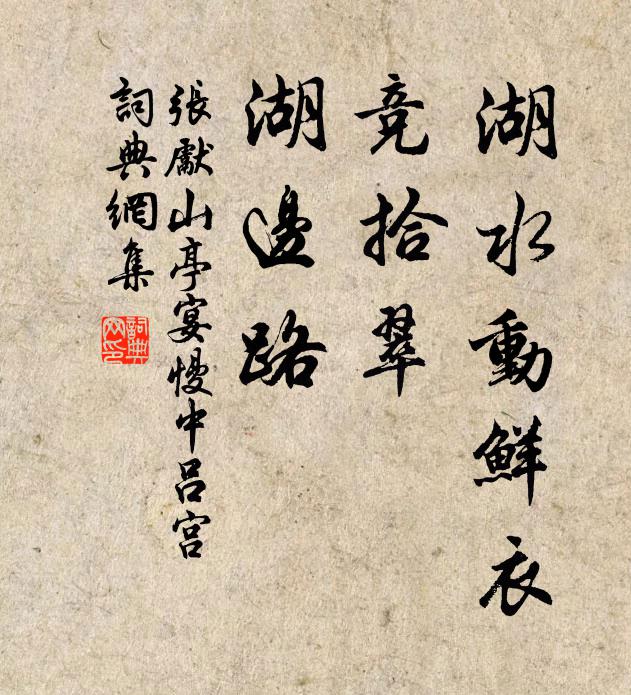 湖水動鮮衣
竞拾翠
湖邊路
張獻山亭宴慢中呂宫
詞典網集
詞典
网印